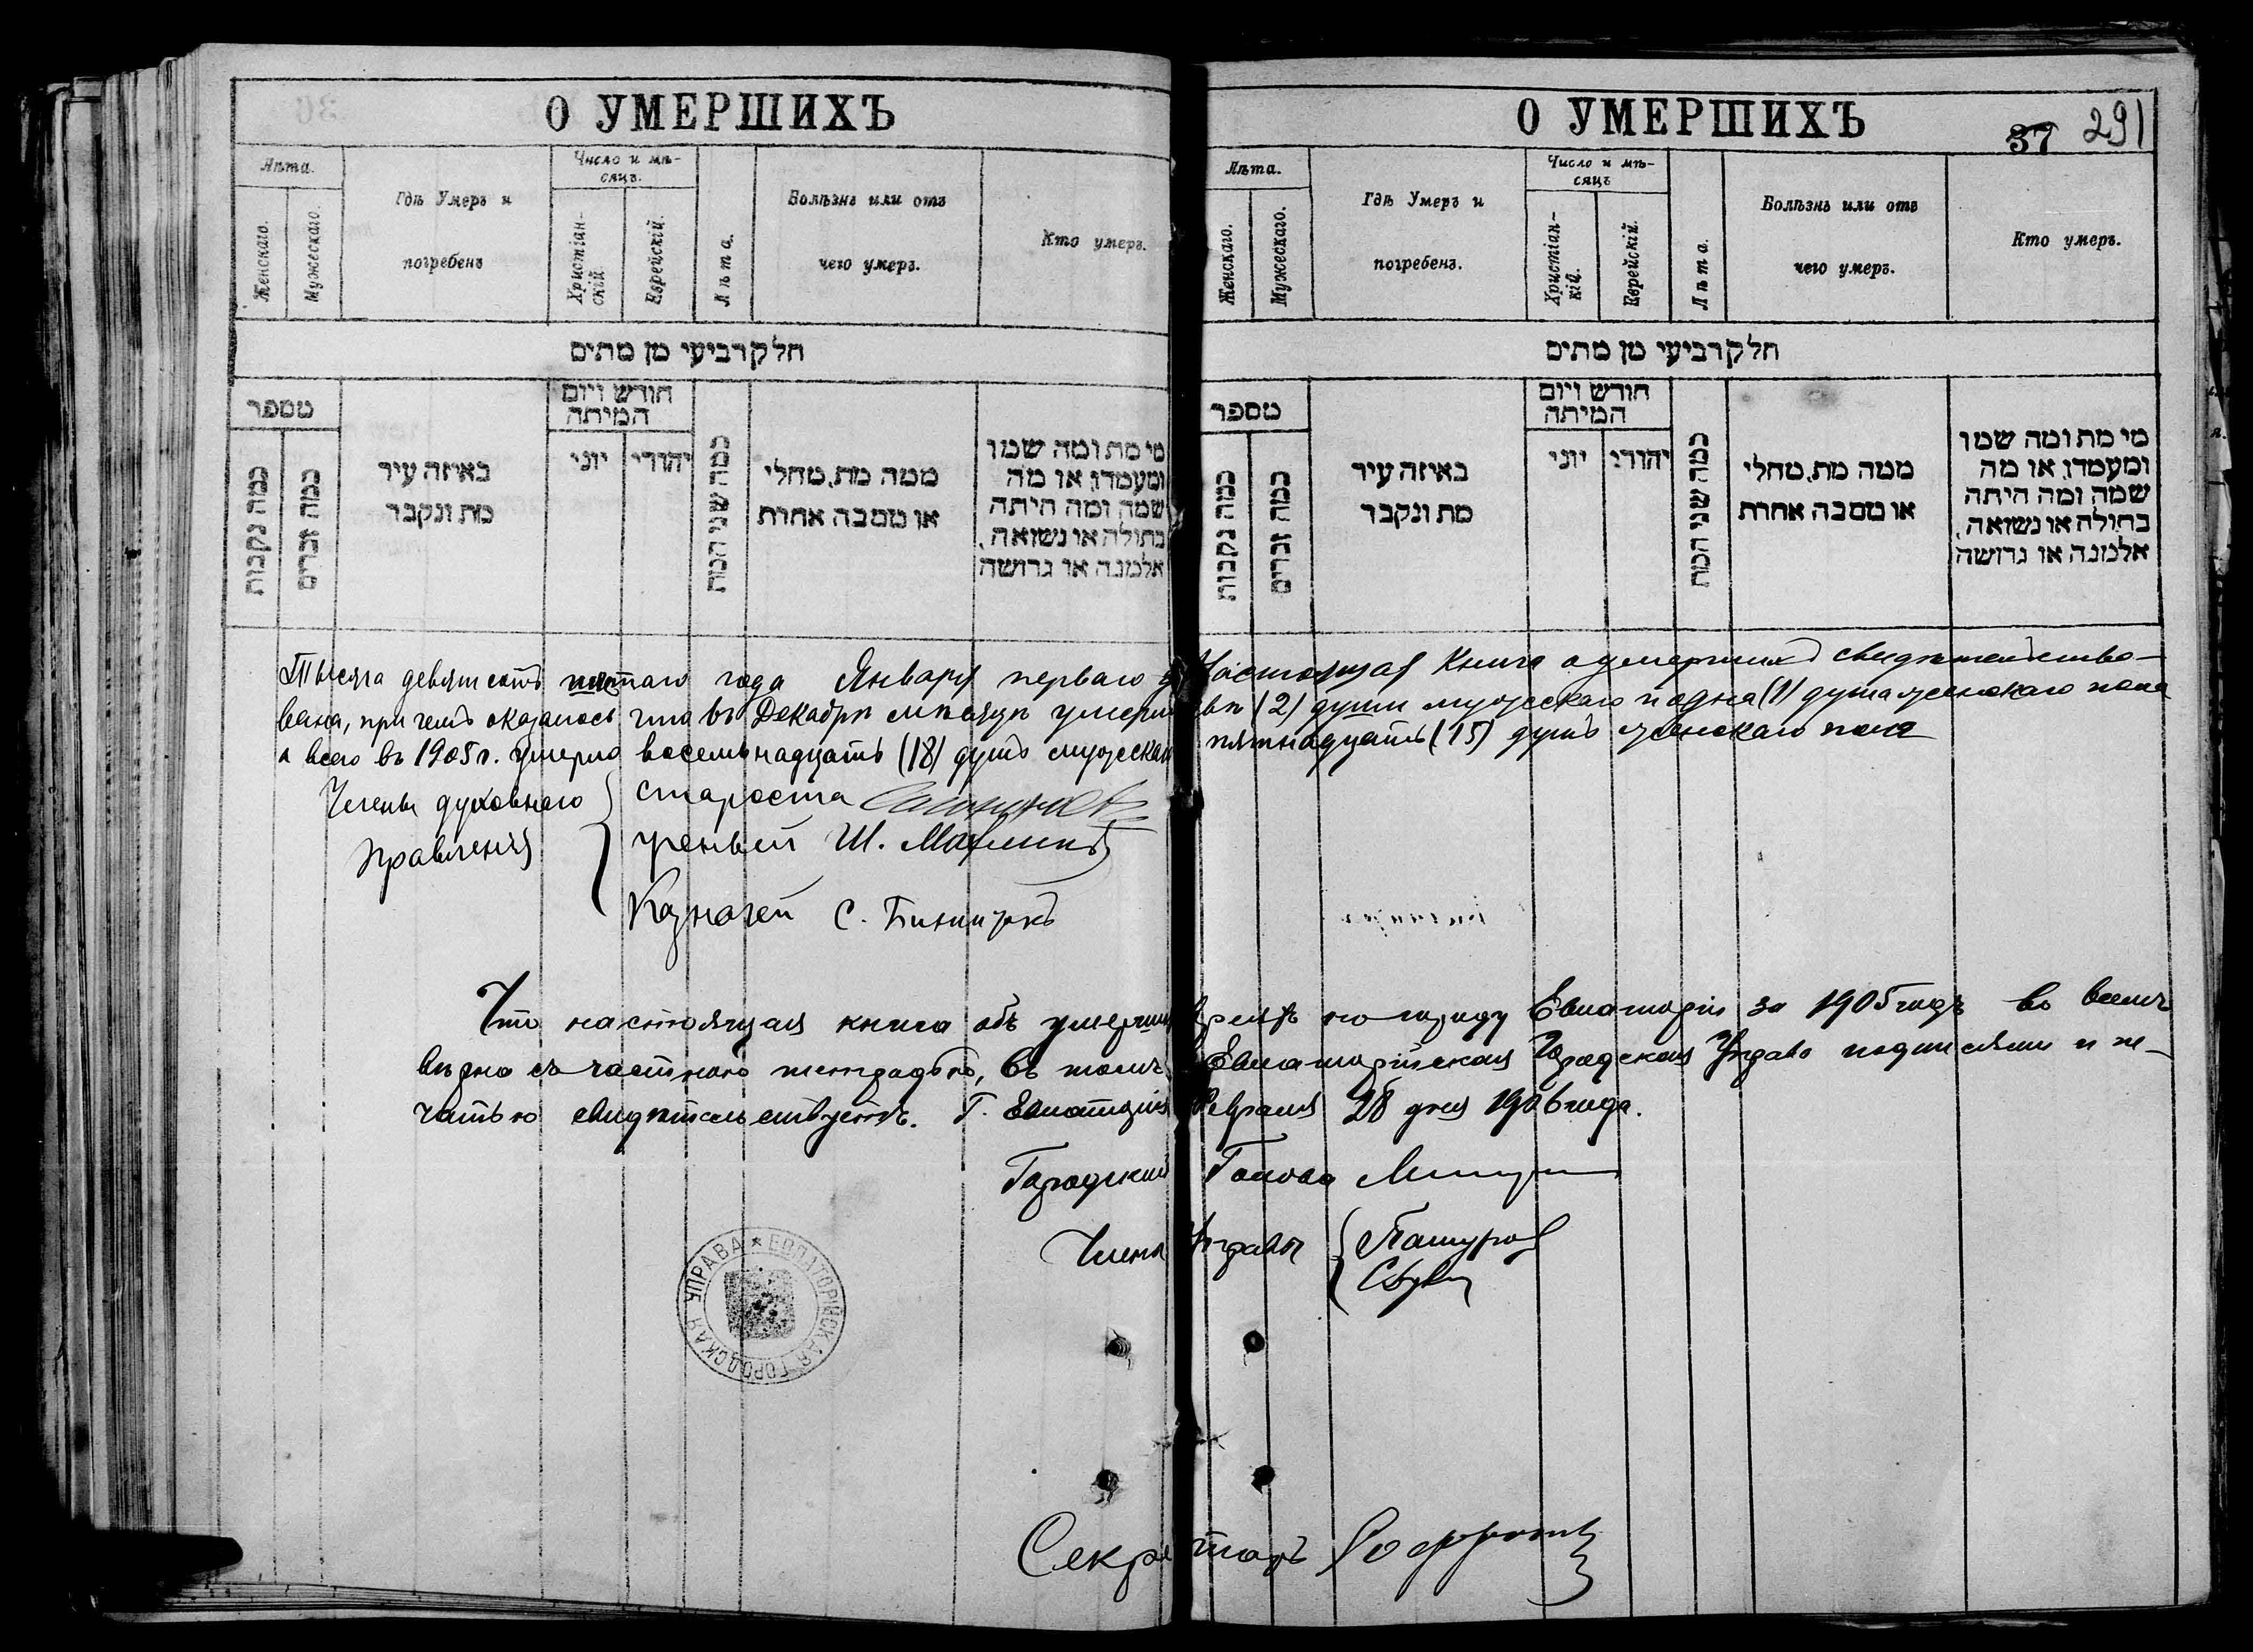 О УМЕРШИХЪ
Лѣта.
Женскаго.
Мужескаго.
Гдѣ Умеръ и
погребенъ
Число и мѣ-
сяцъ.
Христіан-
скій
Еврейскій.
Лѣта.
Болѣзнь или отъ
чего умеръ.
Кто умеръ.
חלק רביעי מן מתים
מספר
כמה נקבות
כמה זכרים
באיזה עיר
מת ונקבר
חודש ויום
המיתה
יוני
יהודי
כמה שני המת
ממה מת, מחלי
או מסבה אחרת
מי מת ומה שמו
ומעמדו, או מה
שמה ומה היתה
בתולה או נשואה,
אלמנה או גרושה
О УМЕРШИХЪ
37 291
Лѣта.
Женскаго.
Мужескаго.
Гдѣ Умеръ и
погребенъ.
Число и мѣ-
сяцъ
Христіан-
кій.
Еврейскій.
Лѣта
Болѣзнь или отъ
чего умеръ.
Кто умеръ.
חלק רביעי מן מתים
מספר
כמה נקבות
כמה זכרים
באיזה עיר
מת ונקבר
חודש ויום
המיתה
יוני
יהודי
כמה שני המת
ממה מת, מחלי
או מסבה אחרת
מי מת ומה שמו
ומעמדו, או מה
שמה ומה היתה
בתולה או נשואה,
אלמנה או גרושה
Тысяча девятьсотъ года Января перваго Настоящая Книга о умершихъ свидѣтельство-
вана, при чемъ оказалось что въ Декабрѣ мѣсяцѣ умерли двѣ (2) души мужескаго и одна (1) душа женскаго пола
а всего въ 1905 г. умерло восемьнадцать (18) душъ мужескаго пятнадцать (15) душъ женскаго пола
Члены духовнаго
Правленія
Староста
ученый Ш.
Казначей С.
Что настоящая книга объ умершихъ по городу Евпаторіи за 1905 годъ во всемъ
вѣрна съ частною тетрадью, въ томъ Евпаторійская Городская Управа подписями и пе-
чатью свидѣтельствуетъ. Г. Евпаторія Февраля 28 дня 1906 года.
Городской Голова
Члены Управы
ЕВПАТОРІЙСКАЯ ГОРОДСКАЯ УПРАВА
Секретарь